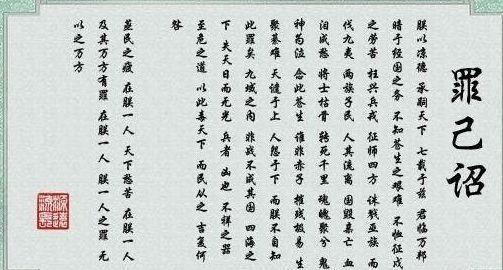 罪己诏
朕以凉德 承嗣天下 七载于兹 君临万邦
暗于经国之务 不知苍生之艰难 不恤征戍
之劳苦 枉兴兵戎 征师四方 诛戮亚族 而
伐九夷 两族子民 人其流离 国毁家亡 血
泪成愁 将士枯骨 转死千里 魂魄聚兮 鬼
神苟泣 念此苍生 谁非赤子 摧残极易 生
聚綦难 天谴于上 人怨于下 而朕不自知
此罪矣 九域之内 非战不成其国 四海之
下 失天日而无光 兵者 凶也 不祥之器
至危之道 以此毒天下 而民从之 吉复何
咎
至民之疲 在朕一人 天下愁苦 在朕一人
及其万方有罪 在朕一人 朕一人之罪 无
以之万方